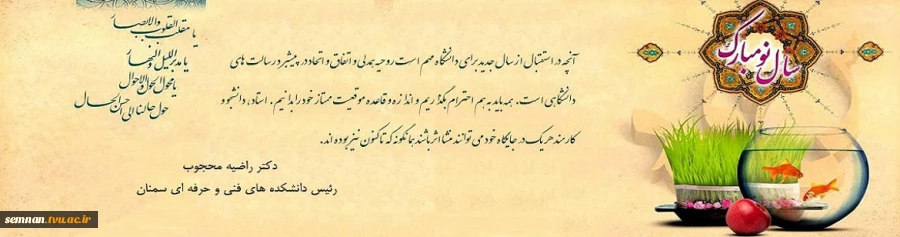 سال نو مبارک
یا مقلب القلوب والابصار
یا مدبر اللیل والنهار
یا محول الحول والاحوال
حول حالنا الی احسن الحال
آنچه در استقبال از سال جدید برای دانشگاه مهم است روحیه همدلی و اتفاق و اتحاد در پیشبرد رسالت های
دانشگاهی است. همه باید به هم احترام بگذاریم و اندازه و قاعده موقعیت ممتاز خود را بدانیم. استاد، دانشجو و
کارمند هر یک در جایگاه خود می توانند منشا اثر باشند همانگونه که تاکنون نیز بوده اند.
دکتر راضیه محجوب
رئیس دانشکده های فنی و حرفه ای سمنان
semnan.tvu.ac.ir